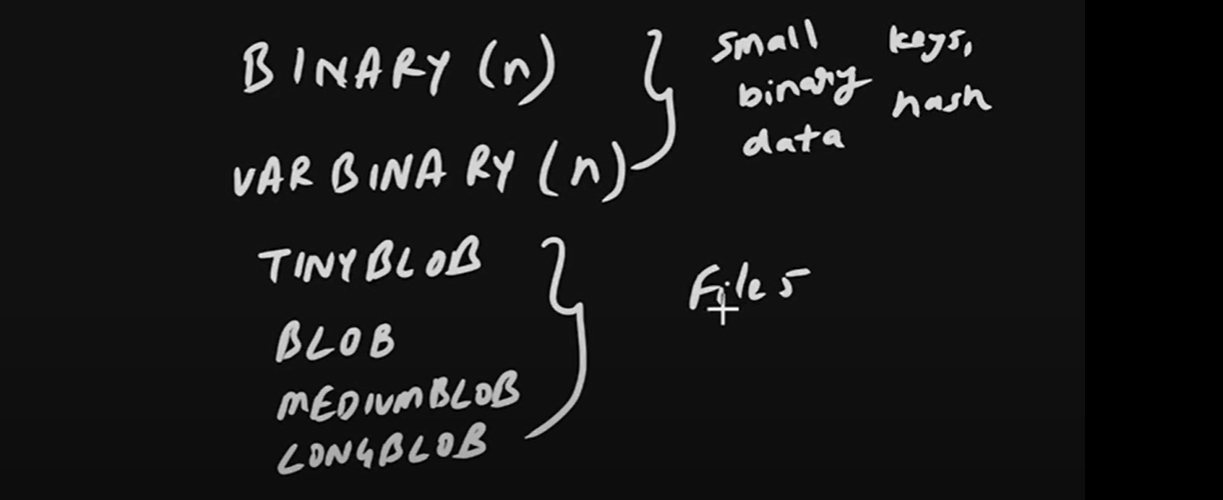 BINARY (n)
VARBINARY (n)
small keys,
binary hash
data
TINYBLOB
BLOB
MEDIUMBLOB
LONGBLOB
Files